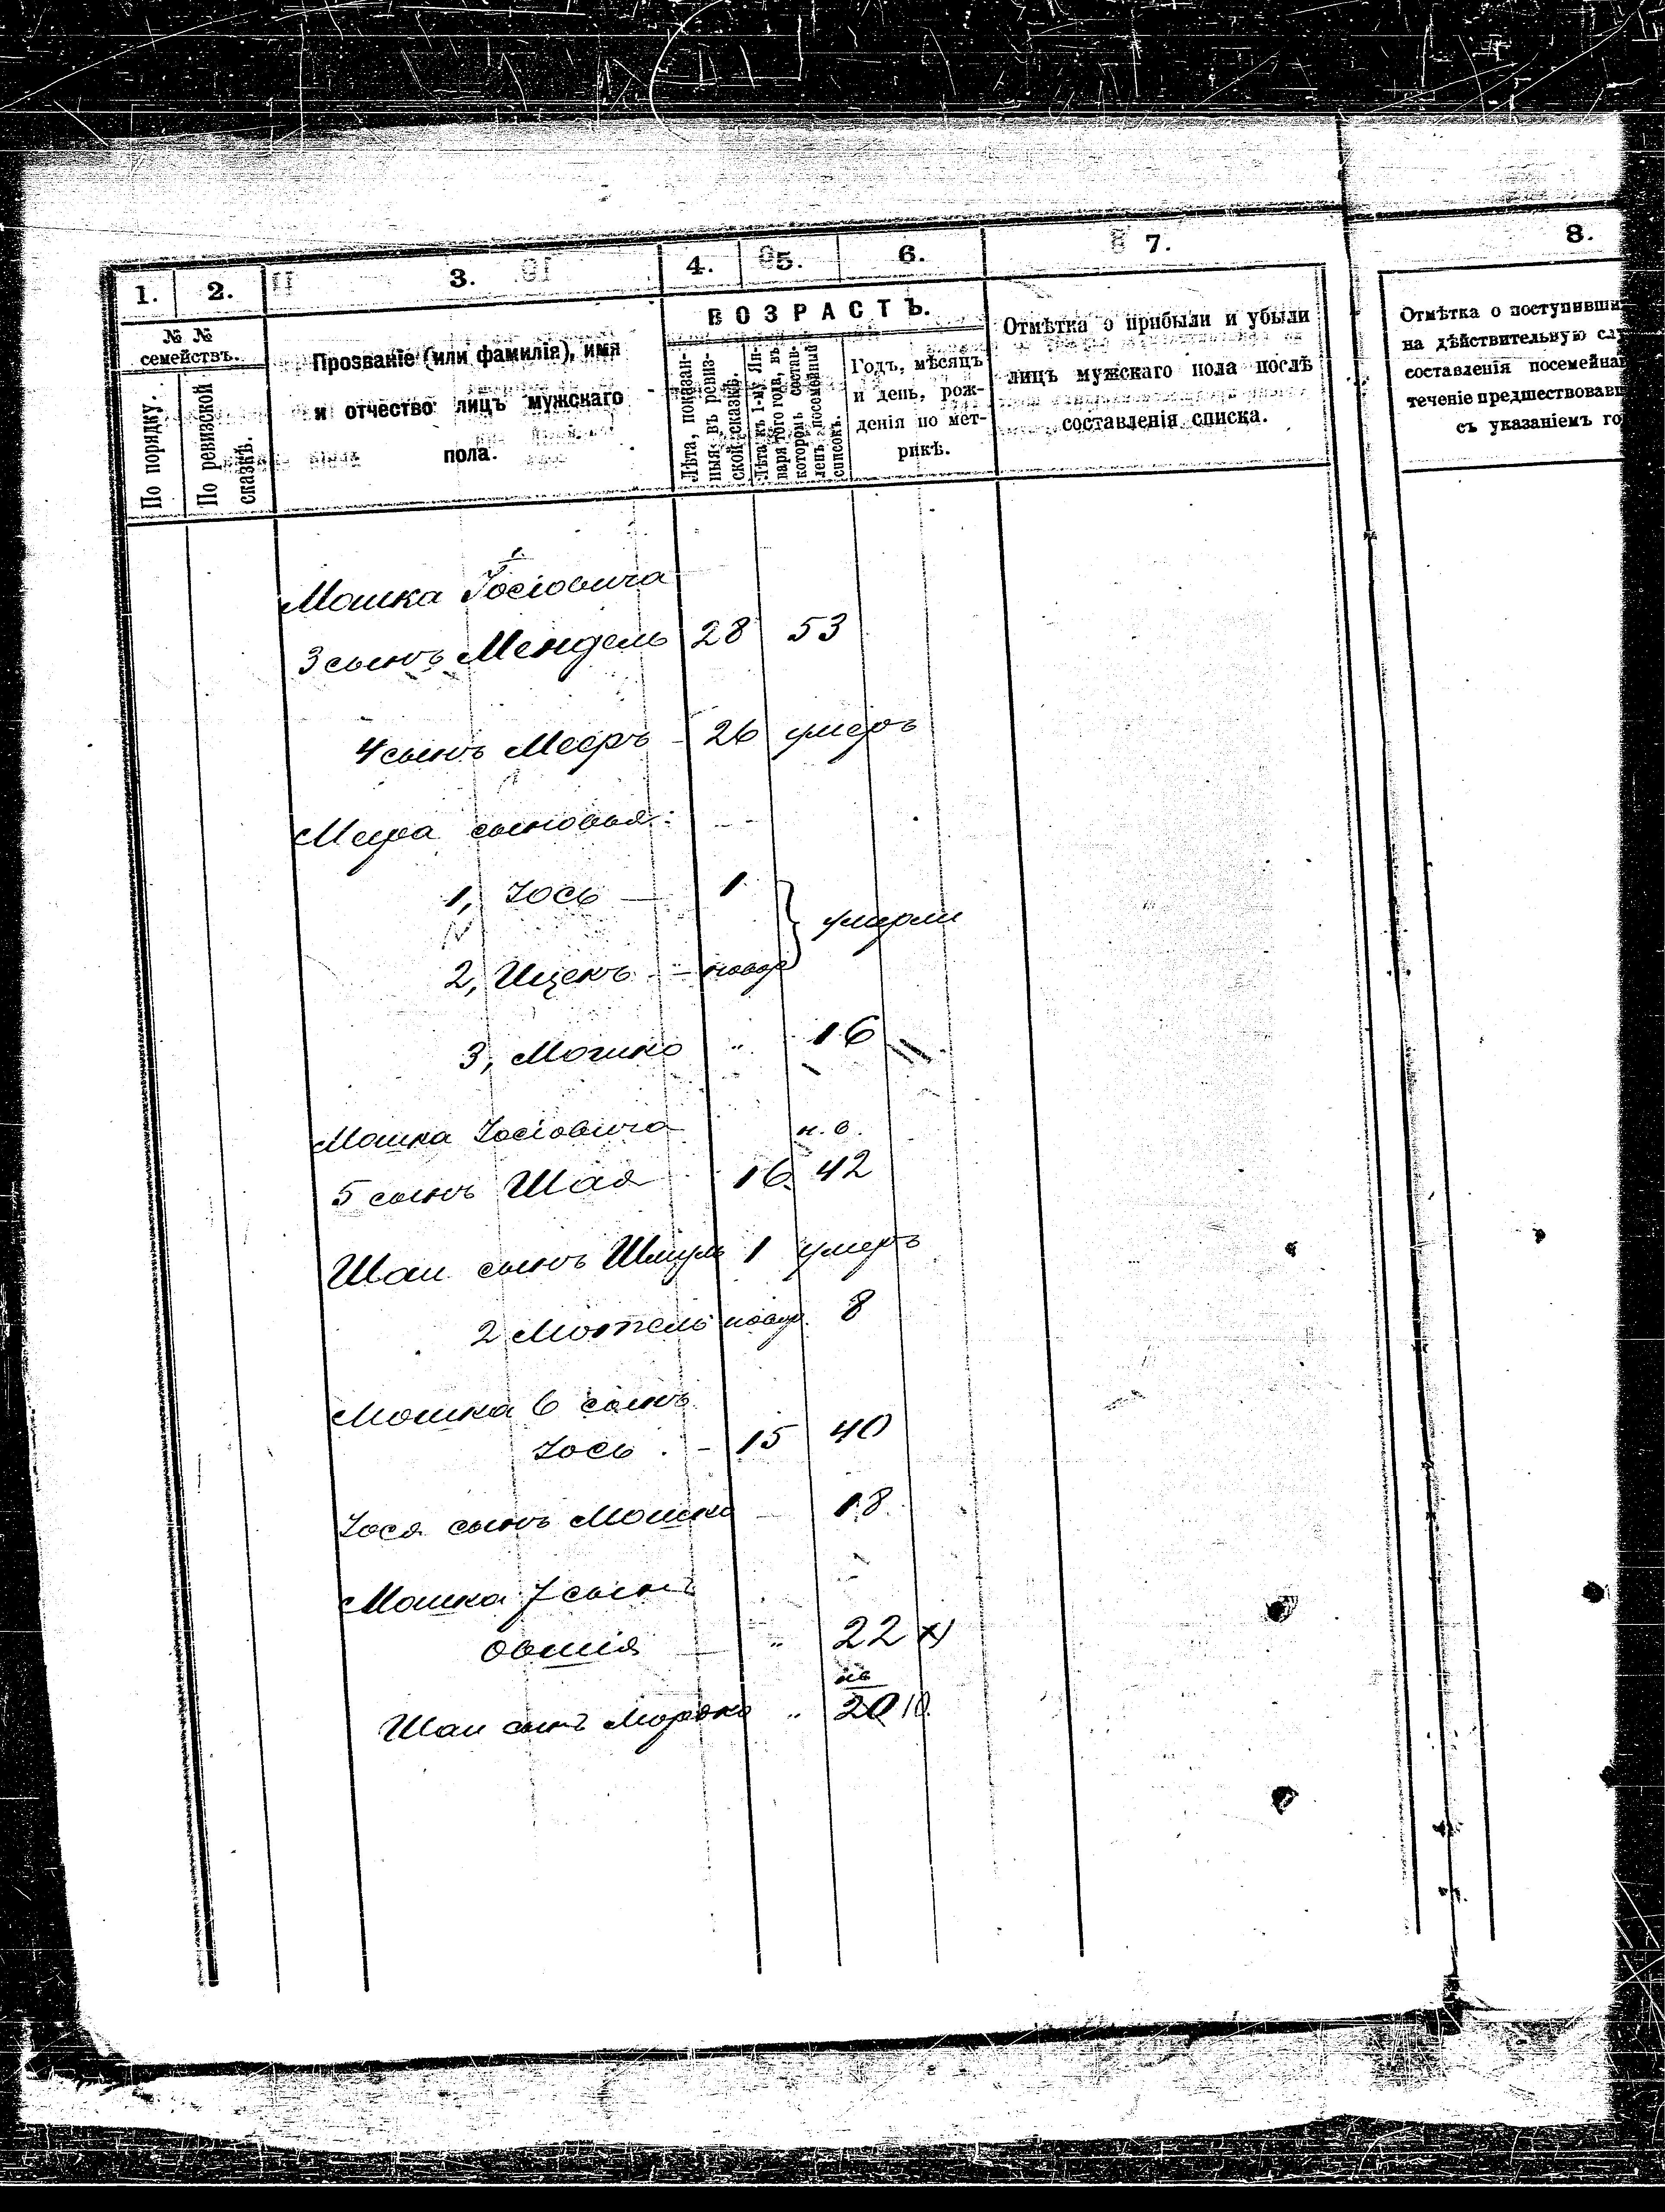 1. 2. 3. 4. 5. 6. 7. 8.
№ №
семействъ.
По порядку.
По ревизской
сказкѣ.
Прозваніе (или фамилія), имя
и отчество лицъ мужскаго
пола.
ВОЗРАСТЪ.
Лѣта, показан-
ныя въ ревиз-
ской сказкѣ.
Лѣта къ 1-му Ян-
варя того года, въ
которомъ состав-
ленъ посемейный
списокъ.
Годъ, мѣсяцъ
и день, рож-
денія по мет-
рикѣ.
Отмѣтка о прибыли и убыли
лицъ мужскаго пола послѣ
составленія списка.
Отмѣтка о поступивши
на дѣйствительную
составленія посемейна
теченіе предшествовав
съ указаніемъ го
Мошка Іосіовича
3 сынъ Мендель 28 53
4 сынъ Мееръ - 26 умеръ
Меера сыновья:
1, Іось — 1
умерли
2, Ицекъ — новор
3, Мошко " 16
Мошка Іосіовича н. о.
5 сынъ Шая 16 42
Шаи сынъ Шмуль 1 умеръ
2 Мотель новор. 8
Мошка 6 сынъ
Іось - 15 40
Іося сынъ Мошко — 18
Мошка 7 сынъ
Овшія — " 22
Шаи сынъ Мордко " 20 10